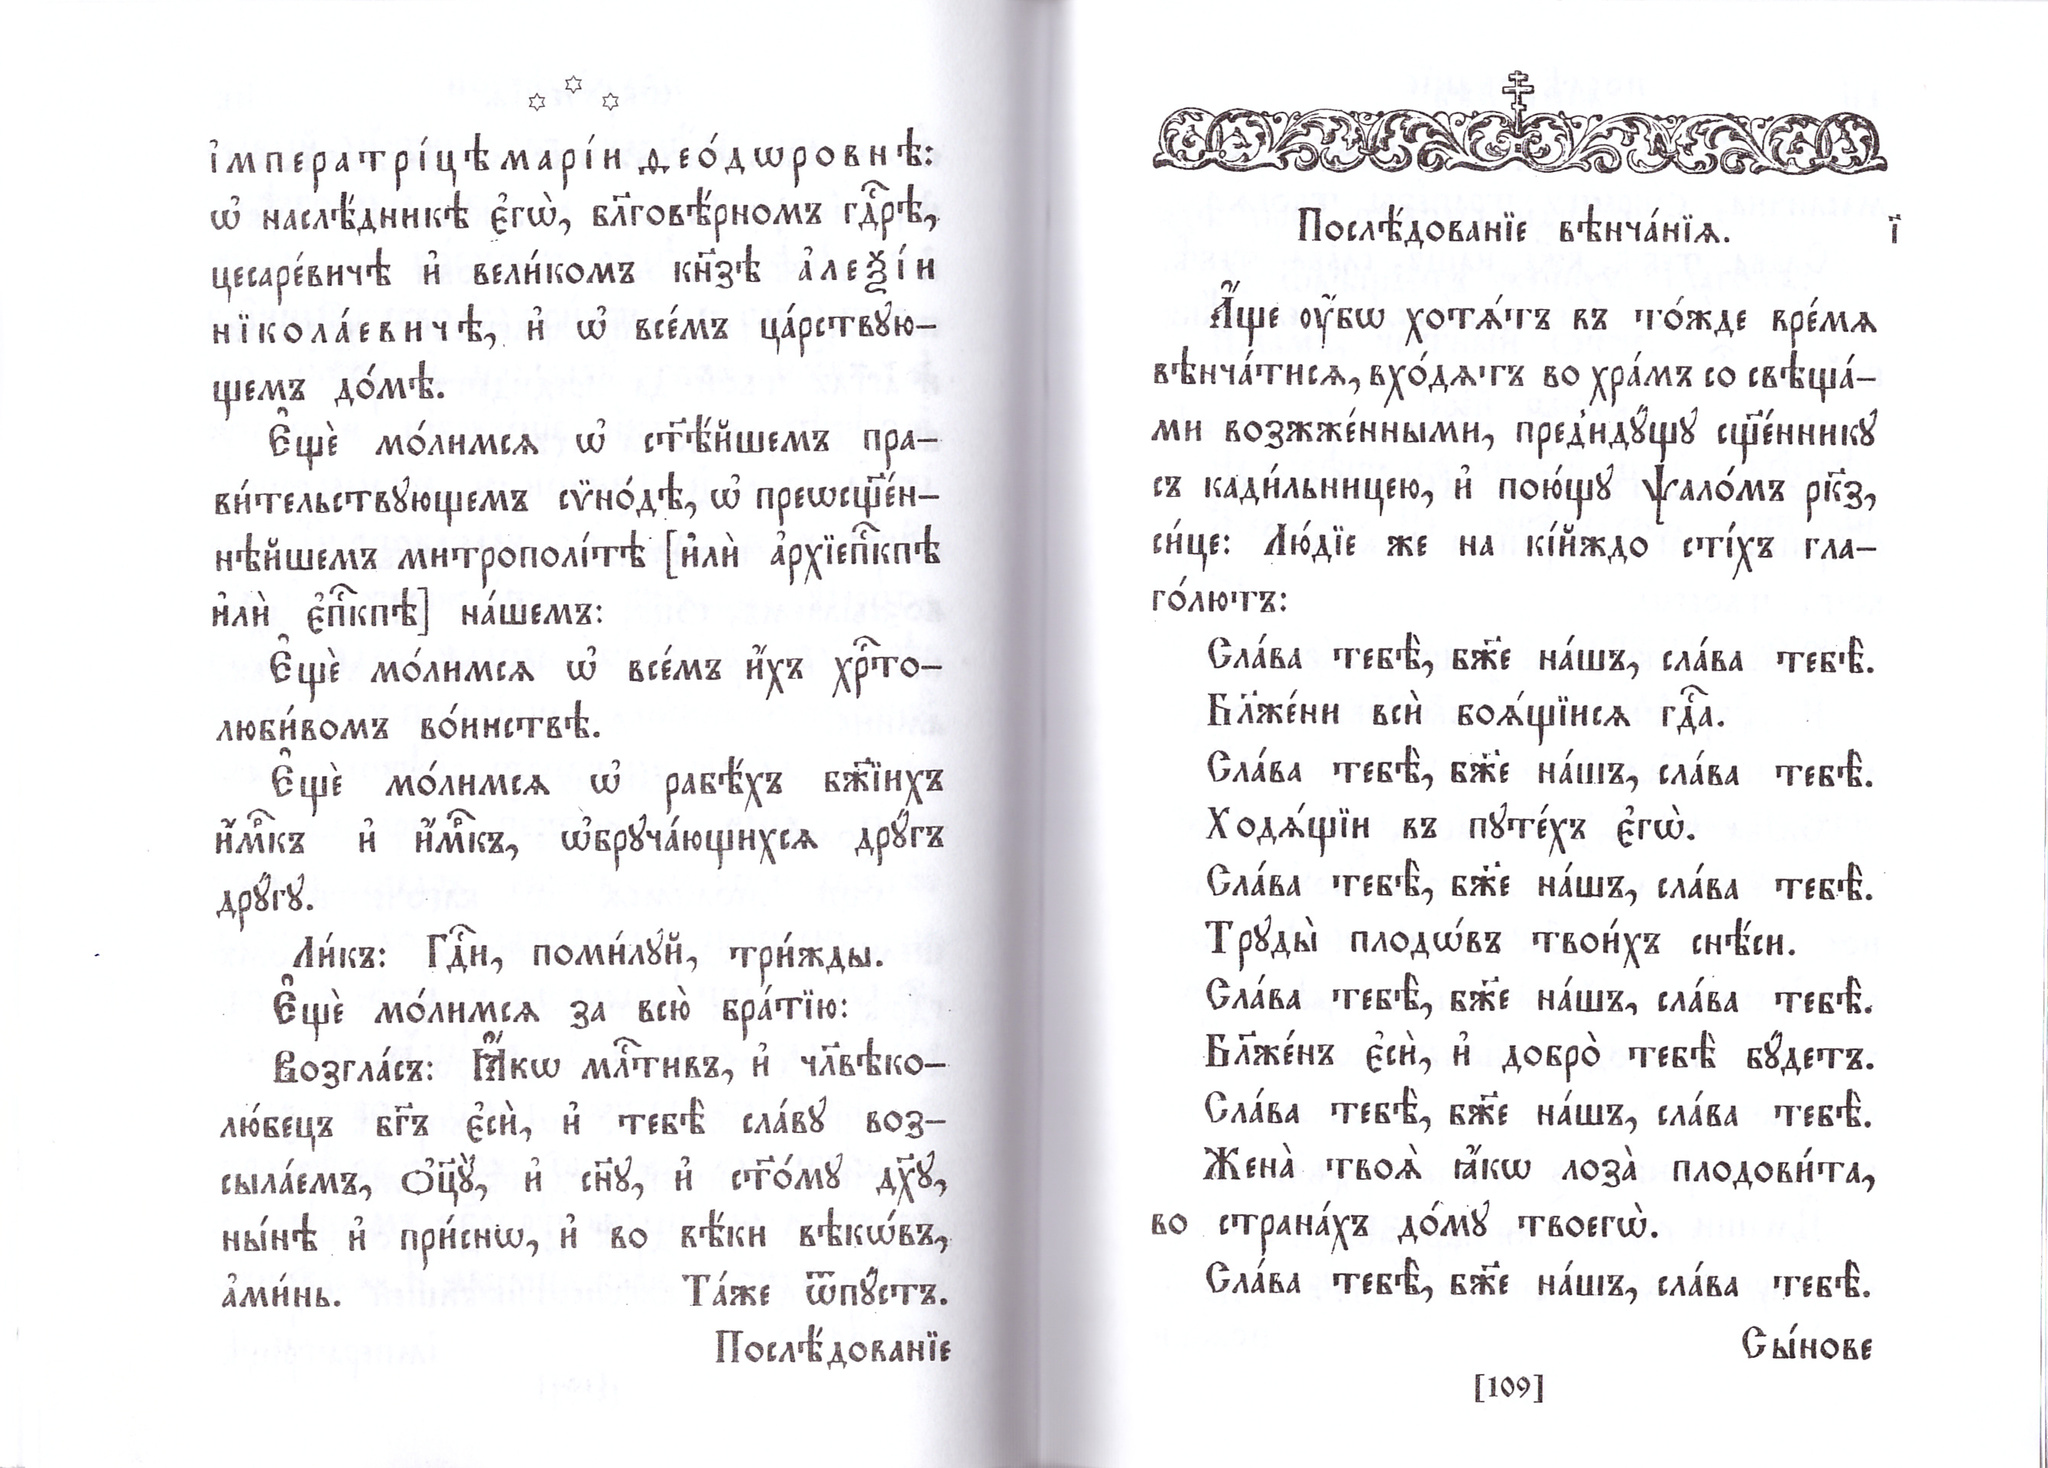 і҆мператрі́цѣ марі́и ѳео́дѡровнѣ:
ѡ҆ наслѣ́дникѣ є҆гѡ̀, бл҃говѣ́рномъ гдⷭ҇рѣ,
цесаре́вичѣ и҆ вели́комъ кн҃зѣ а҆леѯі́и
нїкола́евичѣ, и҆ ѡ҆ все́мъ ца́рствꙋю-
щемъ до́мѣ.
Є҆щѐ мо́лимсѧ ѡ҆ ст҃ѣ́йшемъ пра-
ви́тельствꙋющемъ сѷно́дѣ, ѡ҆ преѡсщ҃е́н-
нѣйшемъ митрополі́тѣ [и҆лѝ а҆рхїепⷭ҇кпѣ
и҆лѝ є҆пⷭ҇кпѣ] на́шемъ:
Є҆щѐ мо́лимсѧ ѡ҆ все́мъ и҆́хъ хрⷭ҇то-
люби́вомъ во́инствѣ.
Є҆щѐ мо́лимсѧ ѡ҆ рабѣ́хъ бж҃їихъ
и҆́мⷬ҇къ и҆ и҆́мⷬ҇къ, ѡ҆брꙋча́ющихсѧ дрꙋ́гъ
дрꙋ́гꙋ.
Ли́къ: Гдⷭ҇и, поми́лꙋй, три́жды.
Є҆щѐ мо́лимсѧ за всю̀ бра́тїю:
Возгла́съ: Ꙗ҆́кѡ млⷭ҇тивъ, и҆ чл҃вѣко-
лю́бецъ бг҃ъ є҆сѝ, и҆ тебѣ̀ сла́вꙋ воз-
сыла́емъ, ѻ҆ц҃ꙋ̀, и҆ сн҃ꙋ, и҆ ст҃о́мꙋ дх҃ꙋ,
ны́нѣ и҆ при́снѡ, и҆ во вѣ́ки вѣкѡ́въ,
а҆ми́нь. Та́же ѿпꙋ́стъ.
Послѣ́дованїе
Послѣ́дованїе вѣнча́нїѧ. і҃
А҆́ще ᲂу҆́бѡ хотѧ́тъ въ то́жде вре́мѧ
вѣнча́тисѧ, вхо́дѧтъ во хра́мъ со свѣща́-
ми возжже́нными, предидꙋ́щꙋ сщ҃е́нникꙋ
съ кади́льницею, и҆ пою́щꙋ ѱало́мъ рк҃з,
си́це: Лю́дїе же на кі́йждо сті́хъ гла-
го́лютъ:
Сла́ва тебѣ̀, бж҃е на́шъ, сла́ва тебѣ̀.
Бл҃же́ни всѝ боѧ́щїисѧ гдⷭ҇а.
Сла́ва тебѣ̀, бж҃е на́шъ, сла́ва тебѣ̀.
Ходѧ́щїи въ пꙋте́хъ є҆гѡ̀.
Сла́ва тебѣ̀, бж҃е на́шъ, сла́ва тебѣ̀.
Трꙋды̀ плодѡ́въ твои́хъ снѣ́си.
Сла́ва тебѣ̀, бж҃е на́шъ, сла́ва тебѣ̀.
Бл҃же́нъ є҆сѝ, и҆ добро̀ тебѣ̀ бꙋ́детъ.
Сла́ва тебѣ̀, бж҃е на́шъ, сла́ва тебѣ̀.
Жена̀ твоѧ̀ ꙗ҆́кѡ лоза̀ плодови́та,
во страна́хъ до́мꙋ твоегѡ̀.
Сла́ва тебѣ̀, бж҃е на́шъ, сла́ва тебѣ̀.
Сы́нове
[109]